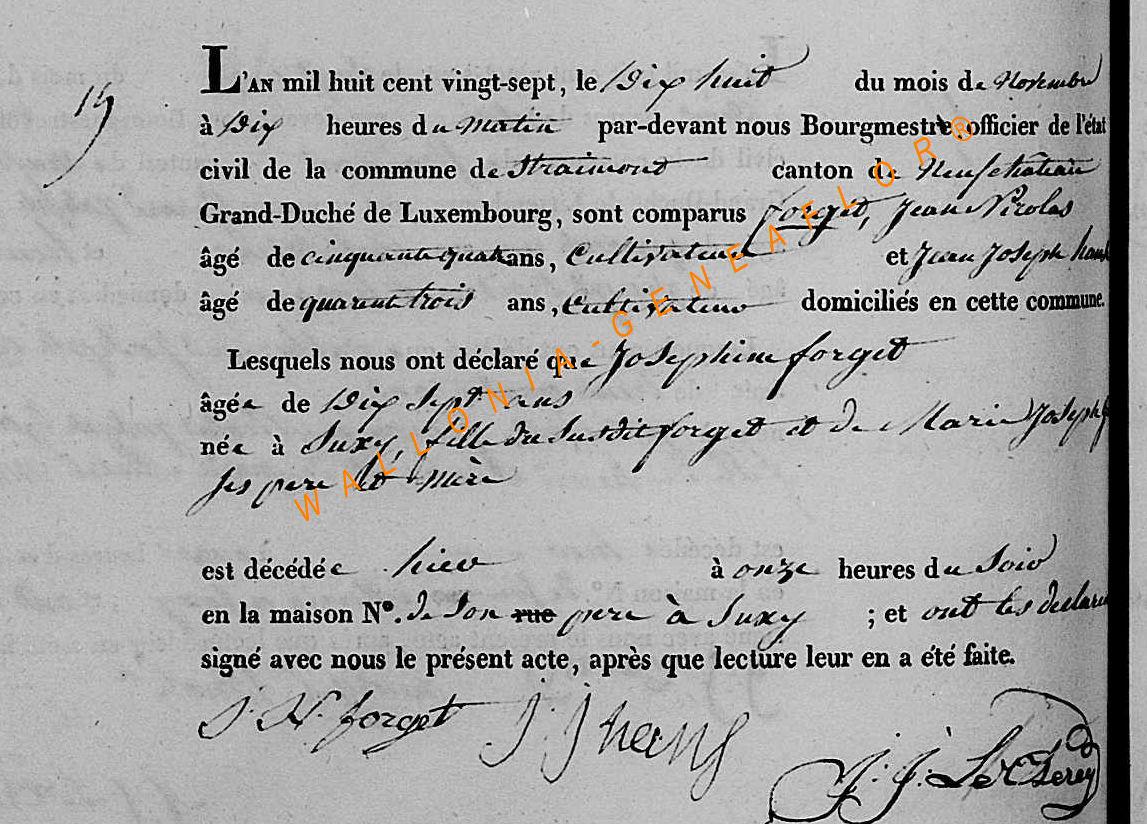 19
L'AN mil huit cent vingt-sept, le Dix huit du mois de Novembre
à Dix heures du Matin par-devant nous Bourgmestre, officier de l'état
civil de la commune de Straimont canton de Neufchateau
Grand-Duché de Luxembourg, sont comparus forget, Jean Nicolas
âgé de cinquante quatre ans, Cultivateur et Jean Joseph
âgé de quarante trois ans, Cultivateur domiciliés en cette commune.
Lesquels nous ont déclaré que Josephine forget
âgée de Dix Sept ans
née à Suxy, fille du Susdit forget et de Marie Joseph
ses pere et Mère
est décédée hier à onze heures du Soir
en la maison N°. de Son rue pere à Suxy ; et ont les
signé avec nous le présent acte, après que lecture leur en a été faite.
J. N. forget J: J hans J: J: Le Clerey
WALLONIA-GENEAFLOR®